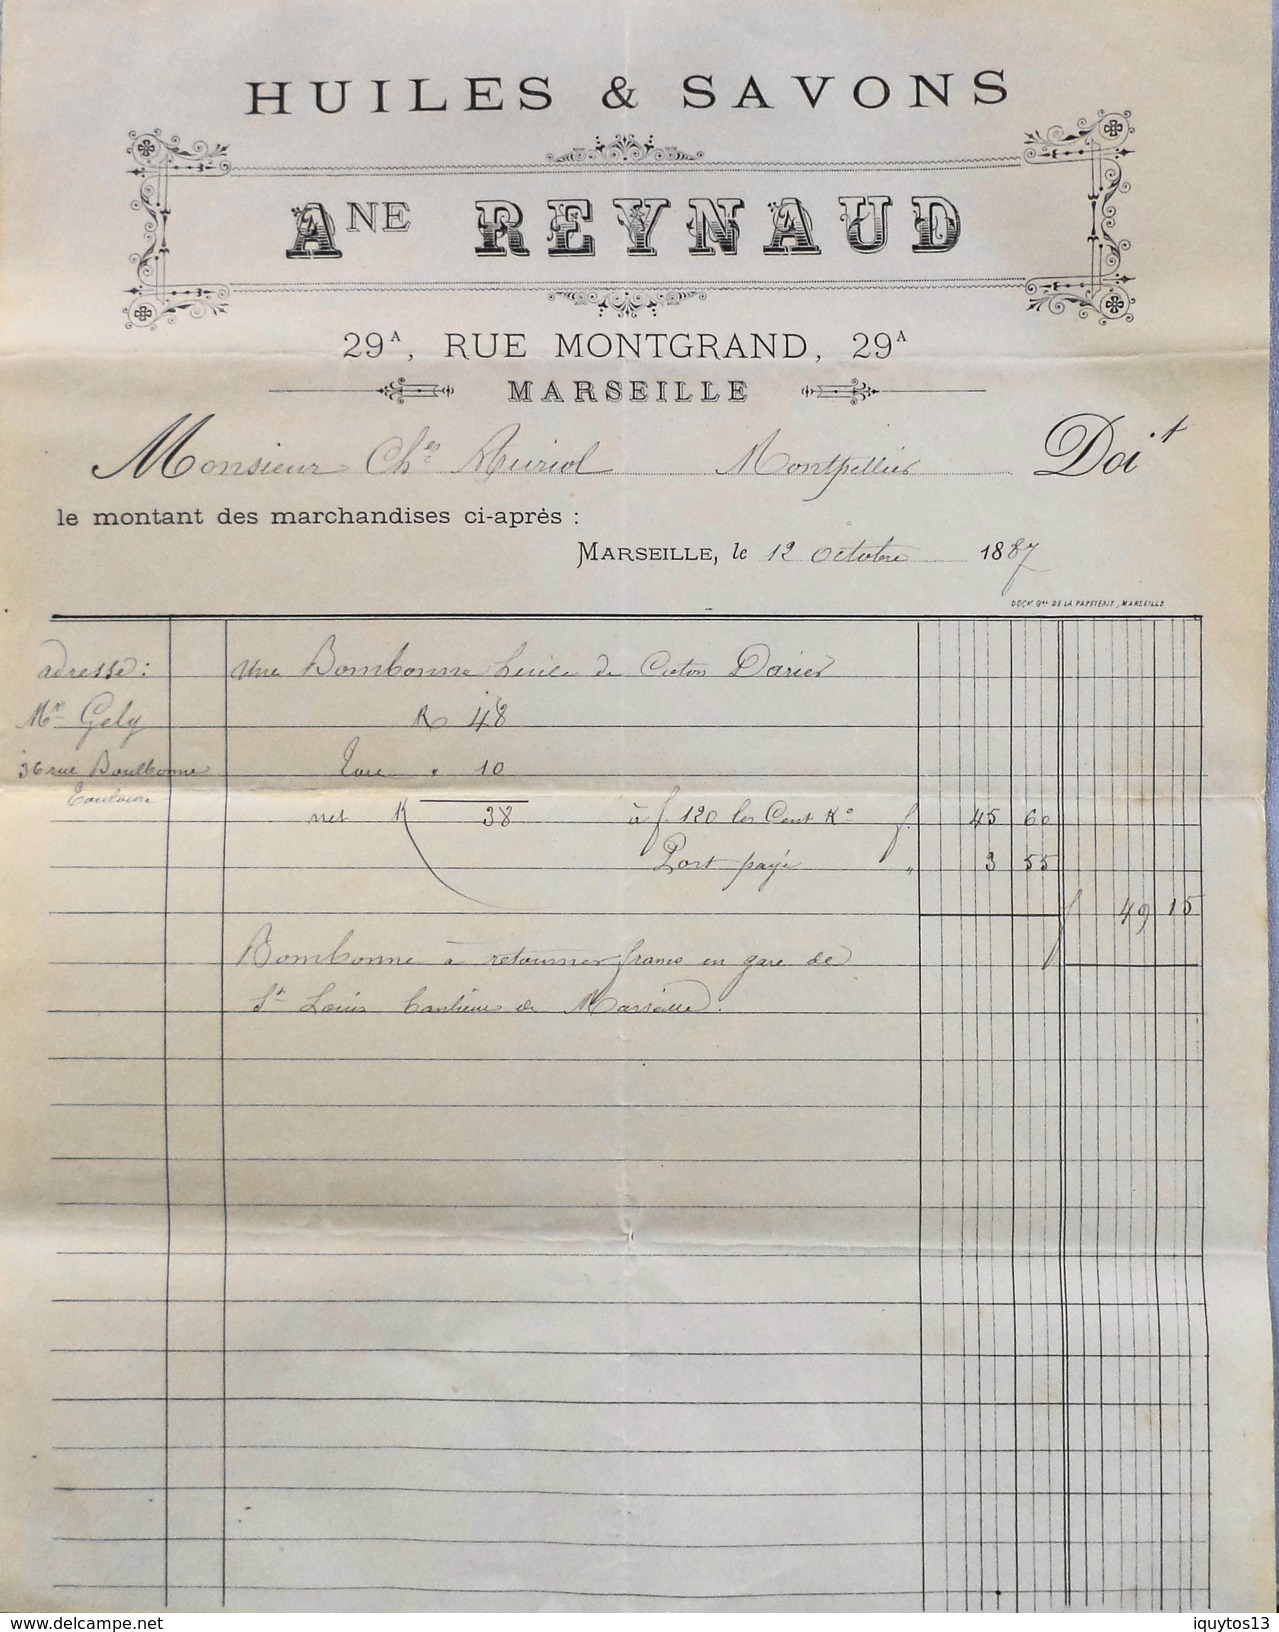 HUILES & SAVONS
ANE REYNAUD
29A, RUE MONTGRAND, 29A
MARSEILLE
Monsieur Ches Muriol Montpellier Doit
le montant des marchandises ci-après :
MARSEILLE, le 12 octobre 1887
DOCKs Gaux DE LA PAPETERIE, MARSEILLE
adresse : une Bombonne huile de Coton Darier
Mr Gely K 48
36 rue Boulbonne Tare " 10
Toulouse
net K 38 à f. 120 les Cent Ko f. 45 60
Port payé " 3 55
f 49 15
Bombonne à retourner franco en gare de
St Louis banlieue de Marseille.
www.delcampe.net
iquytos13